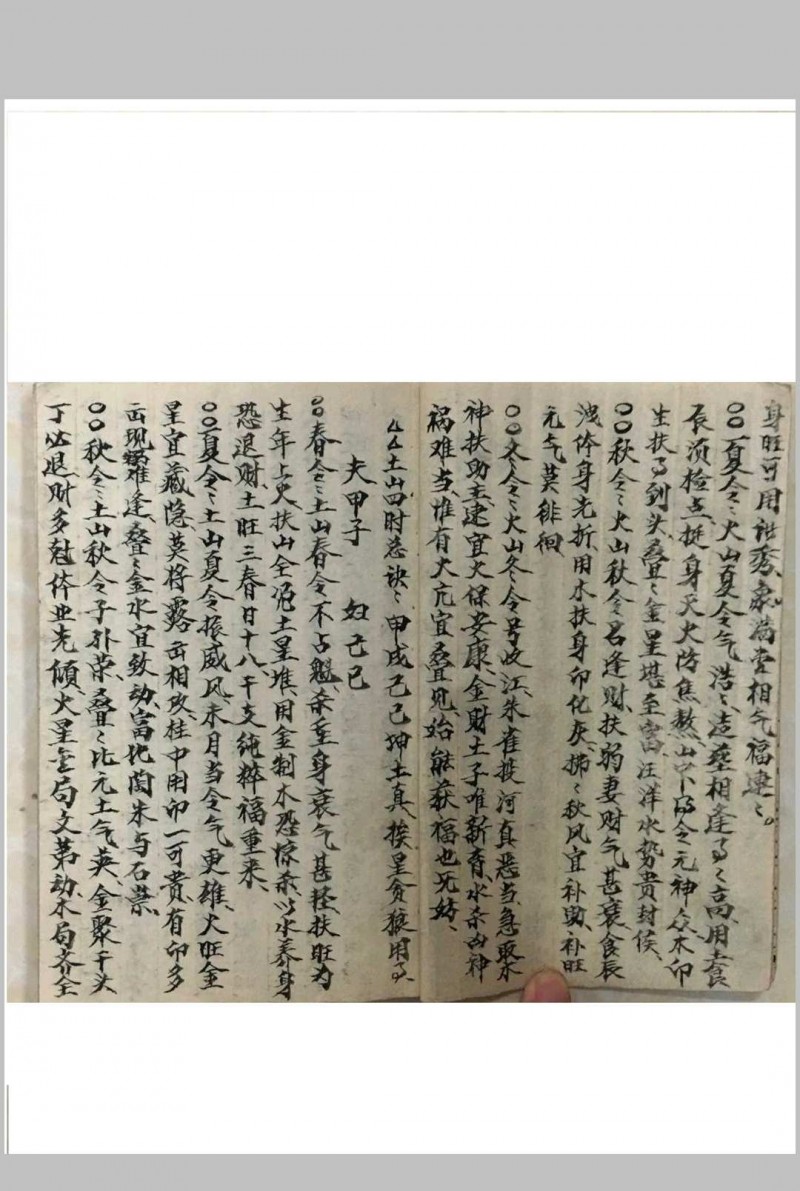 身旺可用泄秀,象满堂相气福建〻。
○○夏令〻火山夏令气浩〻,造葬相逢〻高,用土食
辰须检点,挺身天火防焦熬,山中令元神众,木印
生扶到头,叠〻金星堪至富,汪洋水势贵封侯、
○○秋令〻火山秋令名逢财,扶弱妻财气甚衰,食辰
洩体身先折,用木扶身印化灰,拂〻秋风宜补助,补旺
元气莫徘徊
○○冬令〻火山冬令号收江,朱雀投河真恶当,急取木
神扶助主,建宜火保安康,金财土子唯薪育,水杀凶神
祸难当,惟有火亢宜叠见,始能获福也无妨、
△△土山四时总诀〻甲戌己己坤土真,挨星贪狼用、
夫甲子 妇己巳
○○春令〻土山春令不占魁,杀重身衰气甚轻,扶旺为
生年上火,扶山全凭土星堆,用金制木恐惊杀,以水养身
恐退财,土旺三春日十八,干支纯粹福重来、
○○夏令〻土山夏令振威风,未月当令气更雄,火旺金
星宜藏隐,莫将露出相攻,柱中用印一可贵,有印多
出现祸难逢,叠〻金水宜致动,富比陶朱与石崇、
○○秋令〻土山秋令子外荣,叠〻比元土气英,金聚干头
丁必退,财多尅体业先倾,火星会局文第动,木局齐全